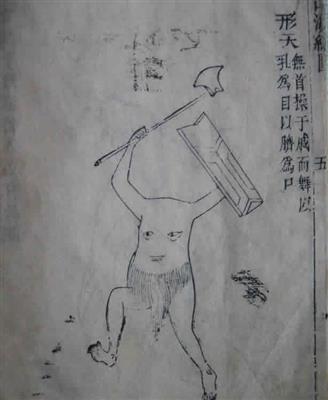 海經圖
五
形天
無首操于戚而舞以
乳為目以臍為口